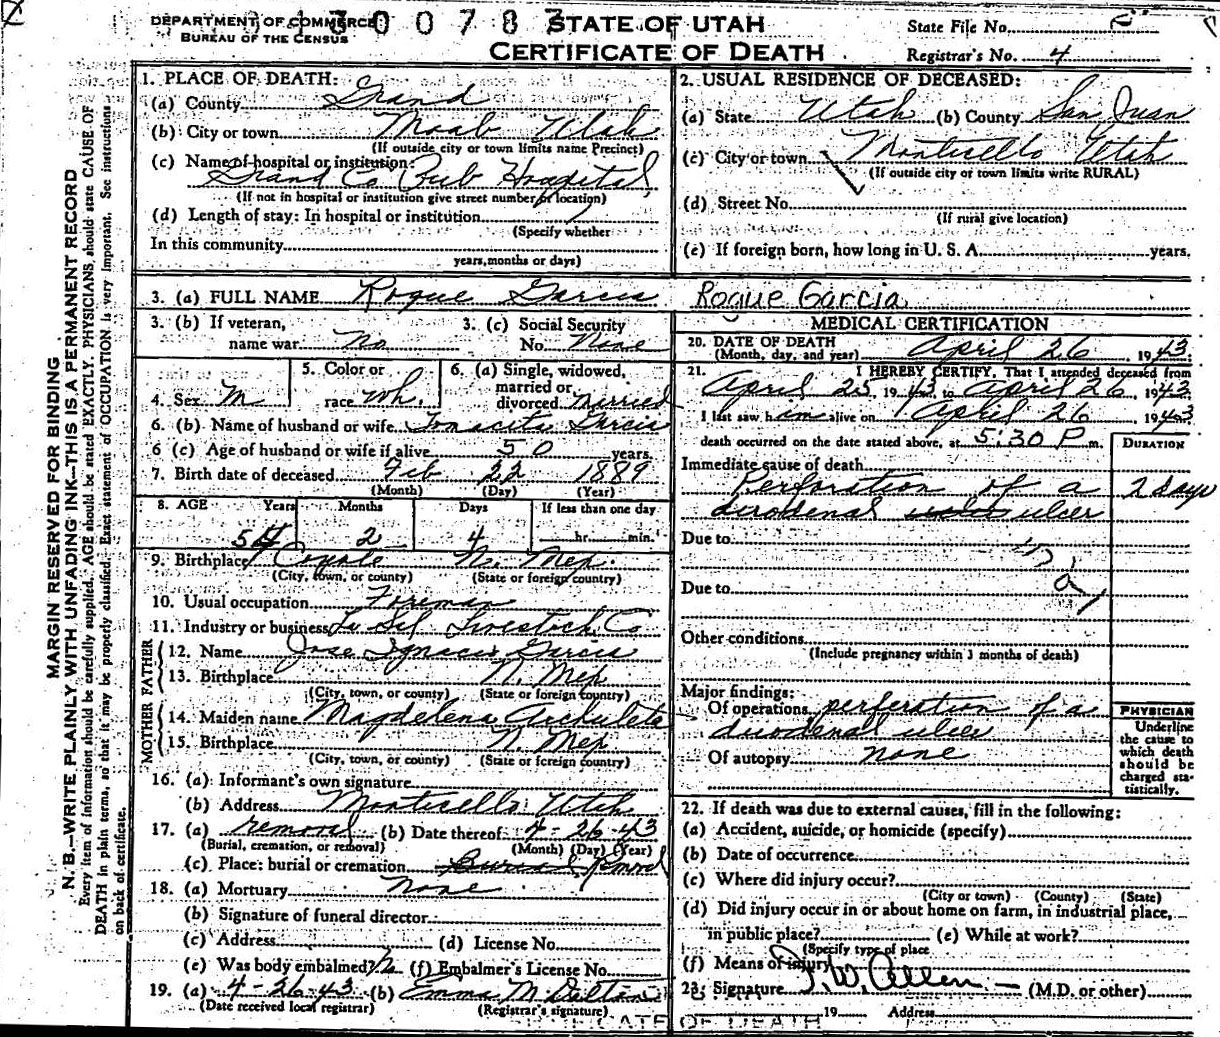 DEPARTMENT OF COMMERCE
BUREAU OF THE CENSUS
STATE OF UTAH
CERTIFICATE OF DEATH
State File No.
Registrar's No. 4
MARGIN RESERVED FOR BINDING
N. B.—WRITE PLAINLY WITH UNFADING INK—THIS IS A PERMANENT RECORD
Every item of information should be carefully supplied. AGE should be stated EXACTLY. PHYSICIANS should state CAUSE OF
DEATH in plain terms, so that it may be properly classified. Exact statement of OCCUPATION is very important. See instructions
on back of certificate.
1. PLACE OF DEATH:
(a) County Grand
(b) City or town Moab Utah
(If outside city or town limits name Precinct)
(c) Name of hospital or institution:
Grand Co Pub Hospital
(If not in hospital or institution give street number or location)
(d) Length of stay: In hospital or institution
(Specify whether
In this community
years, months or days)
2. USUAL RESIDENCE OF DECEASED:
(a) State Utah (b) County San Juan
(c) City or town Monticello Utah
(If outside city or town limits write RURAL)
(d) Street No.
(If rural give location)
(e) If foreign born, how long in U. S. A. years.
3. (a) FULL NAME Roque Garcia Roque Garcia
3. (b) If veteran, name war No
3. (c) Social Security No. None
4. Sex M
5. Color or race Wh.
6. (a) Single, widowed, married or divorced Married
6. (b) Name of husband or wife Garcia
6 (c) Age of husband or wife if alive 50 years.
7. Birth date of deceased Feb 22 1889
(Month) (Day) (Year)
8. AGE Years Months Days If less than one day
54 2 4 hr. min.
9. Birthplace Coyote N. Mex.
(City, town, or county) (State or foreign country)
10. Usual occupation Foreman
11. Industry or business Livestock Co
FATHER
12. Name Jose Ignacio Garcia
13. Birthplace N. Mex
(City, town, or county) (State or foreign country)
MOTHER
14. Maiden name Magdelena Archuleta
15. Birthplace N. Mex
(City, town, or county) (State or foreign country)
16. (a) Informant's own signature
(b) Address Monticello Utah
17. (a) removal (b) Date thereof 4-26-43
(Burial, cremation, or removal) (Month) (Day) (Year)
(c) Place: burial or cremation Burial Removal
18. (a) Mortuary none
(b) Signature of funeral director
(c) Address (d) License No.
(e) Was body embalmed? (f) Embalmer's License No.
19. (a) 4-26-43 (b) Emma M Dalton
(Date received local registrar) (Registrar's signature)
MEDICAL CERTIFICATION
20. DATE OF DEATH
(Month, day, and year) April 26, 1943.
21. I HEREBY CERTIFY, That I attended deceased from
April 25, 1943 to April 26, 1943.
I last saw him alive on April 26 1943
death occurred on the date stated above, at 5:30 P m. DURATION
Immediate cause of death
Perforation of a 2 days
duodenal ulcer
Due to
Due to
Other conditions
(Include pregnancy within 3 months of death)
Major findings:
Of operations perferation of a
duodenal ulcer
Of autopsy none
PHYSICIAN
Underline
the cause to
which death
should be
charged sta-
tistically.
22. If death was due to external causes, fill in the following:
(a) Accident, suicide, or homicide (specify)
(b) Date of occurrence
(c) Where did injury occur?
(City or town) (County) (State)
(d) Did injury occur in or about home on farm, in industrial place,
in public place? (e) While at work?
(Specify type of place
(f) Means of injury
23. Signature W. Allen (M.D. or other)
19 Address
CERTIFICATE OF DEATH